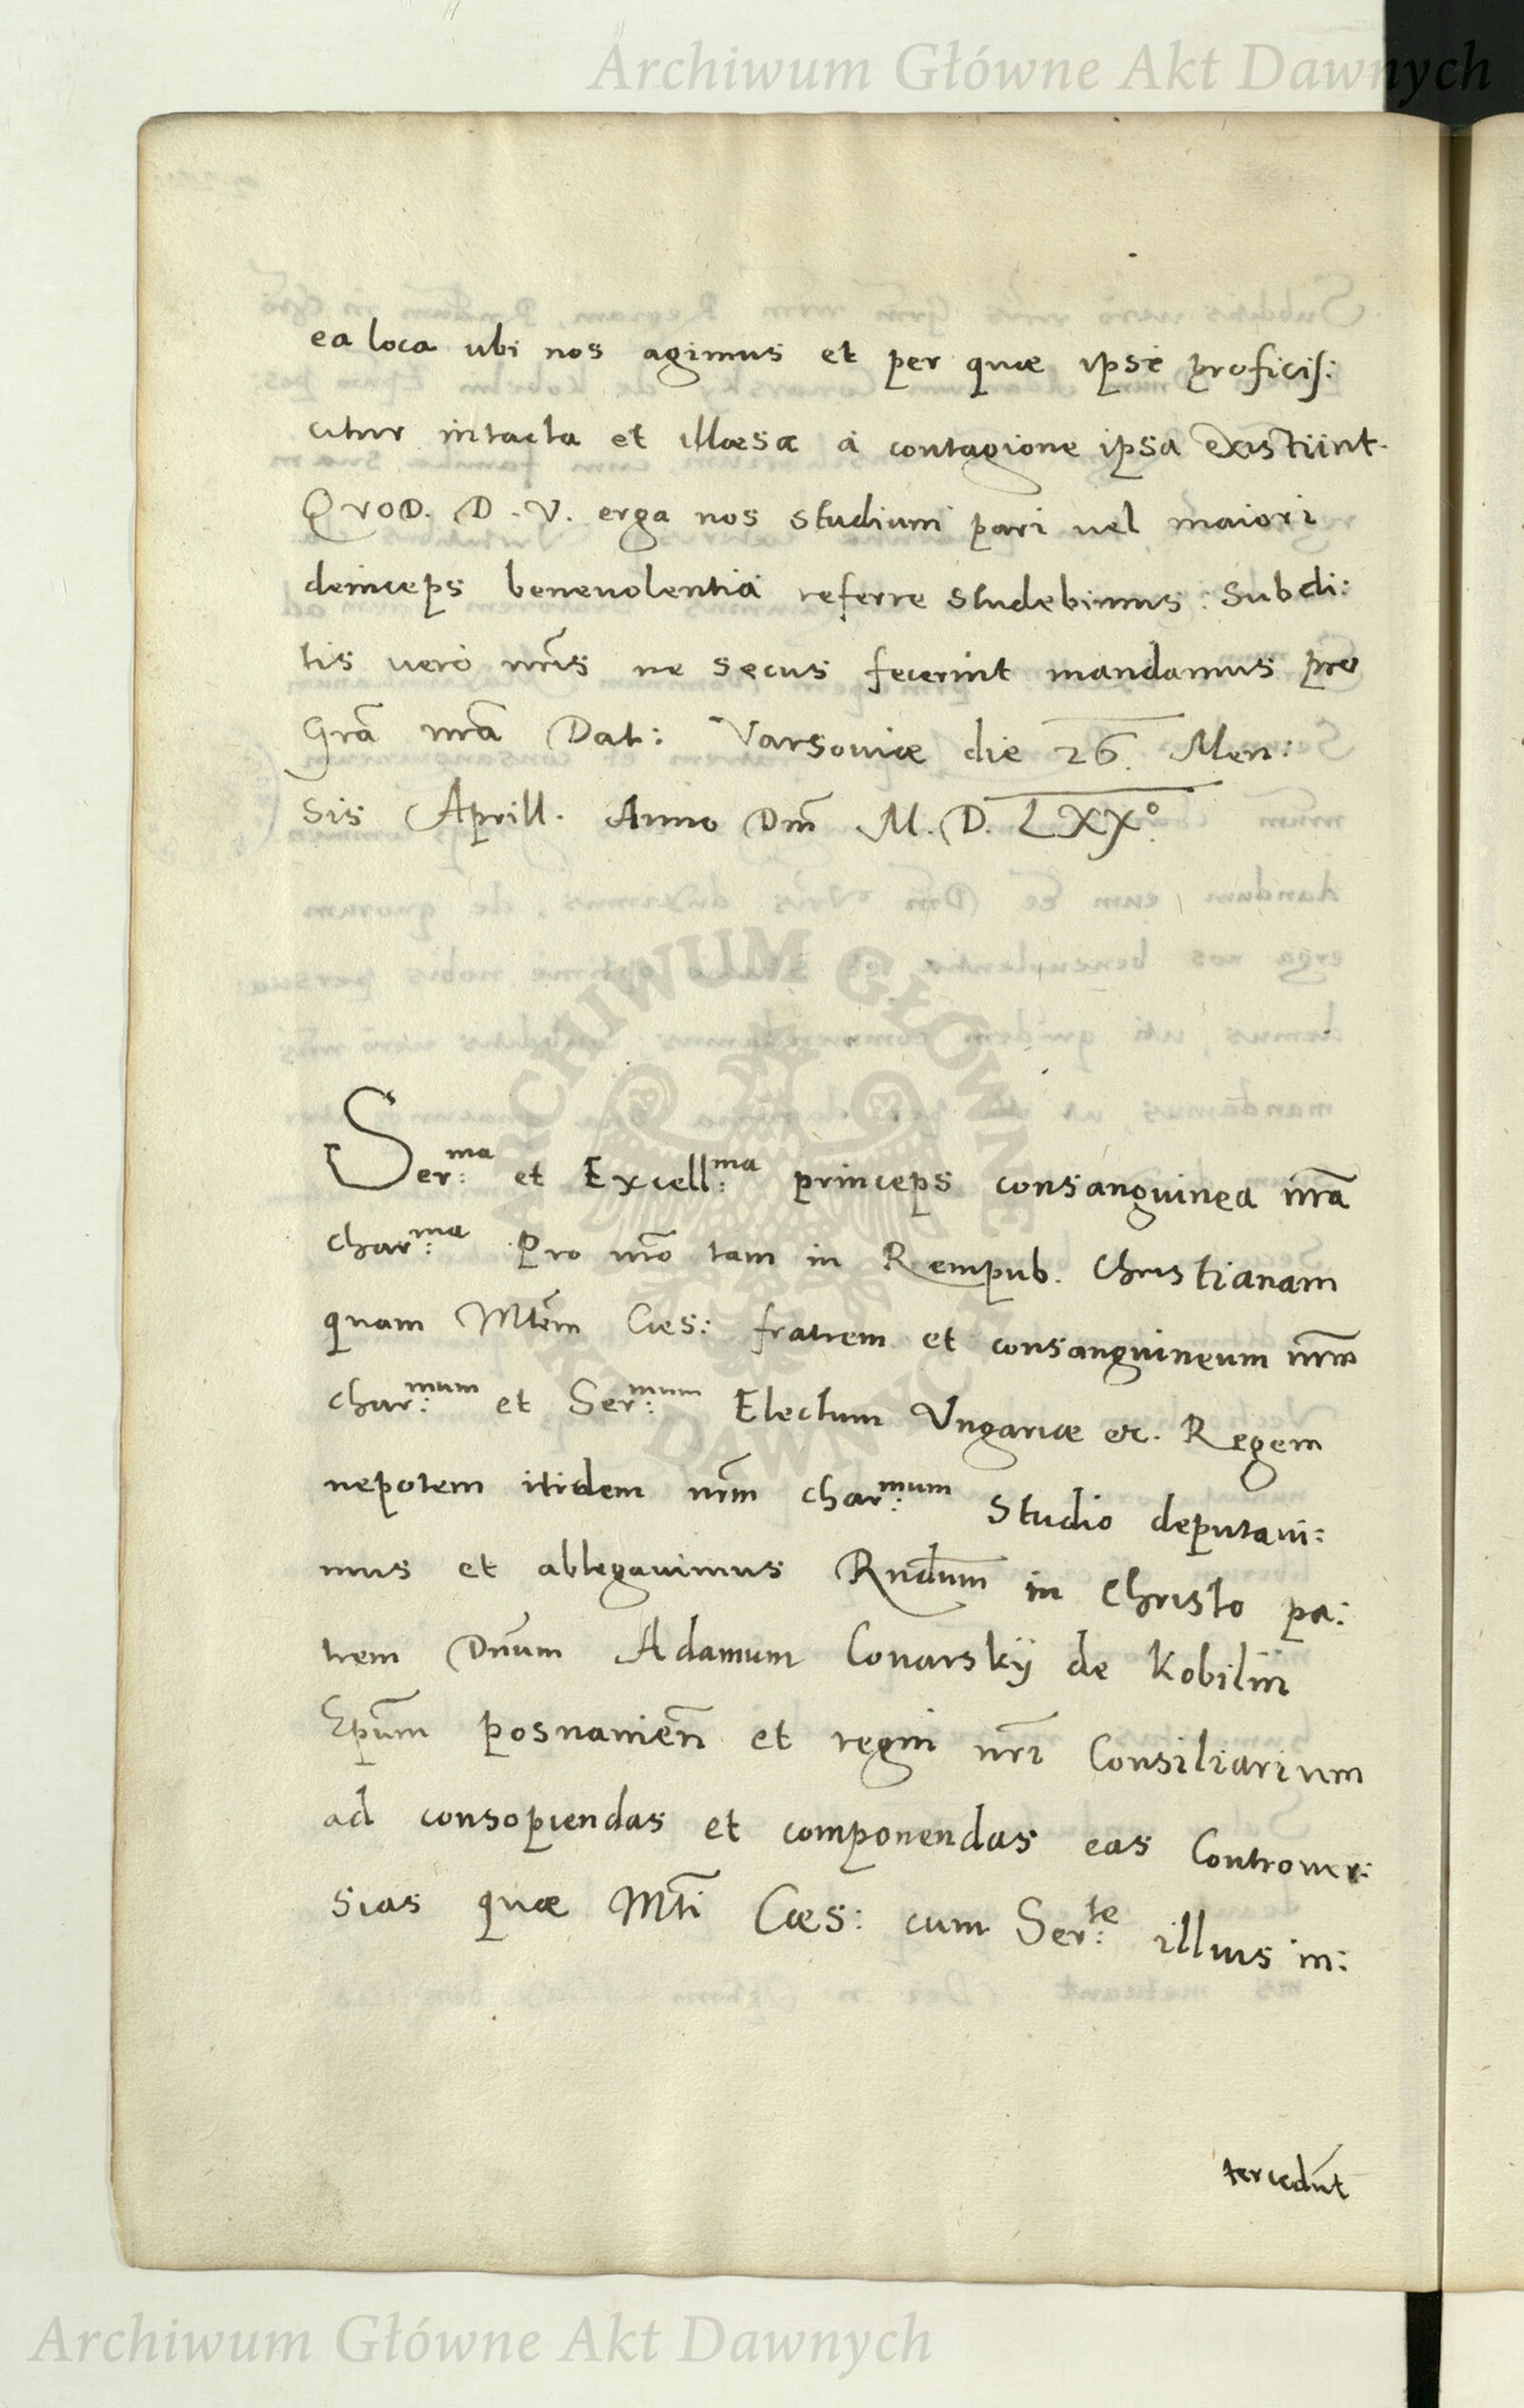 Archiwum Główne Akt Dawnych
ea loca ubi nos agimus et per quæ ipse proficis:
citur intacta et illæsa à contagione ipsa existunt.
Quod. D. V. erga nos studium pari uel maiori
deinceps beneuolentia referre studebimus. Subdi:
tis uerò nr̃is ne secus fecerint mandamus pro
Grã nrã Dat: Varsouiæ die 26. Men:
sis Aprill. Anno Dnĩ M. D. LXXº.
ARCHIWUM GŁÓWNE
AKT DAWNYCH
Ser:ma et Excell:ma princeps consanguinea nrã
char:ma Pro nrõ tam in Rempub. Christianam
quam Mtẽm Cæs: fratrem et consanguineum nrũm
char:mum et Ser:mum Electum Vngariæ etc. Regem
nepotem itidem nrũm char:mum studio deputaui:
mus et ablegauimus Rndũm in Christo pa:
trem Dnũm Adamum Conarskÿ de Kobilin
Epũm posnanieñ et regni nrĩ Consiliarium
ad consopiendas et componendas eas Controuer:
sias quæ Mtĩ Cæs: cum Ser:te illius in:
tercedũt
Archiwum Główne Akt Dawnych